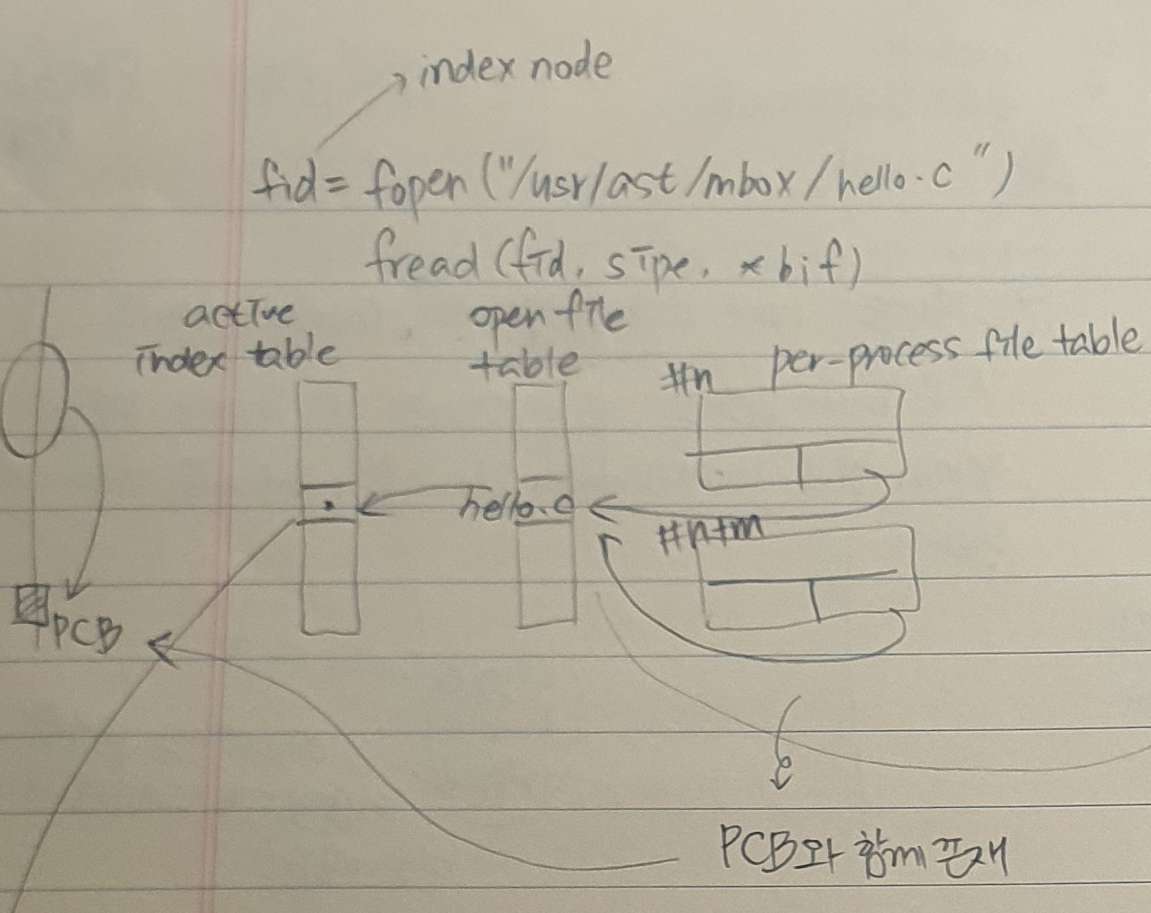 index node
fid= fopen ("/usr/ast/mbox/hello.c")
fread (fid, sipe, *bif)
active
index table
open file
table
#n per-process file table
hello.c
#n+m
PCB
PCB와 함께 존재